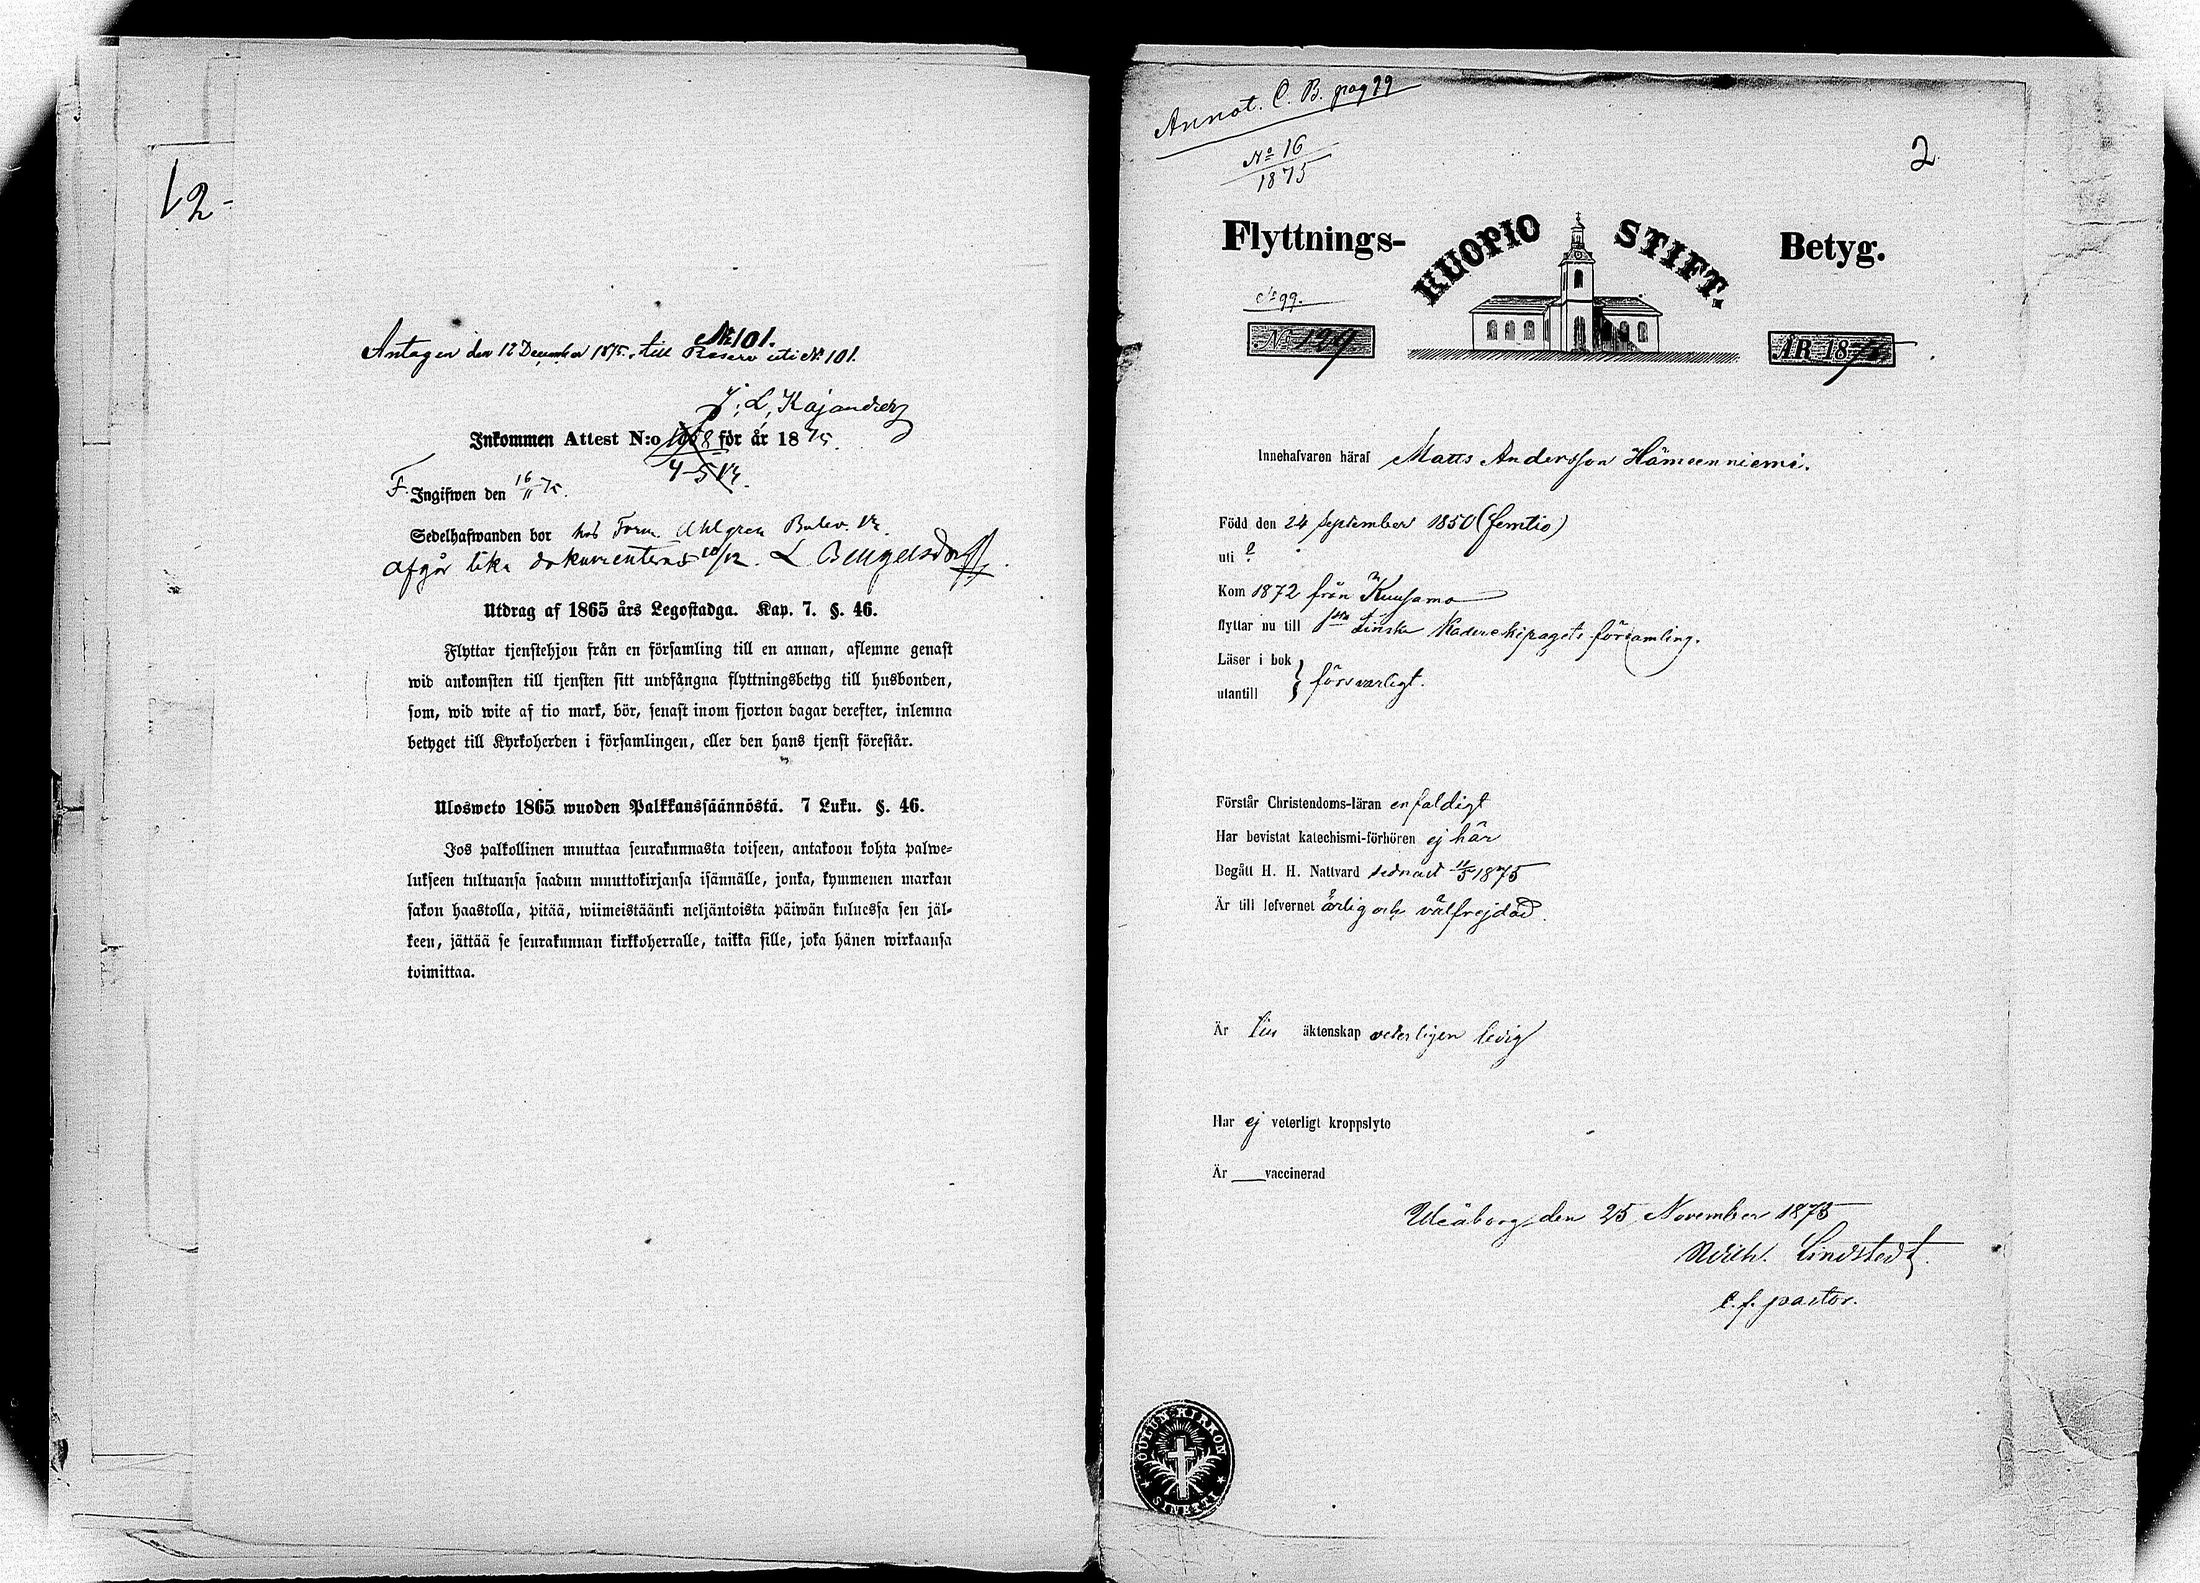 12-
Antagen den 12 December 1875, till Reserv uti No 101.
No 101.
J. L. Kajander
Inkommen Attest N:o 1058 för år 1875
4-5 Vr.
F. Ingifwen den 16/11 75.
Sedelhafwanden bor hos Form. Ahlgren
afgår lika dokumenterad 10/12. L Bengelsdorff
Utdrag af 1865 års Legostadga. Kap. 7. §. 46.
Flyttar tjenstehjon från en församling till en annan, aflemne genast
wid ankomsten till tjensten sitt undfångna flyttningsbetyg till husbonden,
som, wid wite af tio mark, bör, senast inom fjorton dagar derefter, inlemna
betyget till Kyrkoherden i församlingen, eller den hans tjenst förestår.
Ulosweto 1865 wuoden Palkkaussäännöstä. 7 Luku. §. 46.
Jos palkollinen muuttaa seurakunnasta toiseen, antakoon kohta palwe-
lukseen tultuansa saadun muuttokirjansa isännälle, jonka, kymmenen markan
sakon haastolla, pitää, wiimeistäänki neljäntoista päiwän kuluessa sen jäl-
keen, jättää se seurakunnan kirkkoherralle, taikka sille, joka hänen wirkaansa
toimittaa.
Annot. C. B. pag 99
No 16
1875
2
Flyttnings- KUOPIO STIFT. Betyg.
No 99.
No 129 ÅR 1875
Innehafvaren häraf Matts Andersson Hämeenniemi.
Född den 24 September 1850 (femtio)
uti ?
Kom 1872 från Kuusamo
flyttar nu till 1sta Finska Kaderekipagets församling.
Läser i bok
utantill } försvarligt.
Förstår Christendoms-läran enfaldigt
Har bevistat katechismi-förhören ej här
Begått H. H. Nattvard sednast 11/5 1875
Är till lefvernet ärlig och välfrejdad.
Är till äktenskap veterligen ledig
Har ej veterligt kroppslyte
Är ___ vaccinerad
Uleåborg den 25 November 1875
Wilh. Lindstedt.
t.f. pastor.
OULUN KIRKON
SINETTI